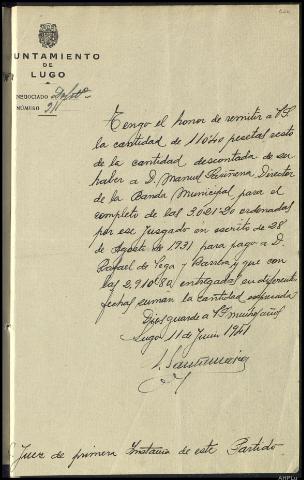 AYUNTAMIENTO
DE
LUGO
NEGOCIADO Dpbtº
NÚMERO 211
Tengo el honor de remitir a VS
la cantidad de 110'40 pesetas resto
de la cantidad descontada de su
haber a D. Manuel Director
de la Banda Municipal para el
completo de las 3.021'20 ordenadas
por ese Juzgado en escrito de 28
de Agosto de 1931 para pago a D.
Rafael de Vega y Barrera y que con
las 2,910'80 entregadas en diferentes
fechas suman la cantidad expresada
Dios guarde a VS muchos años
Lugo 11 de Junio 1941
Juez de primera Instancia de este Partido
AHPLU